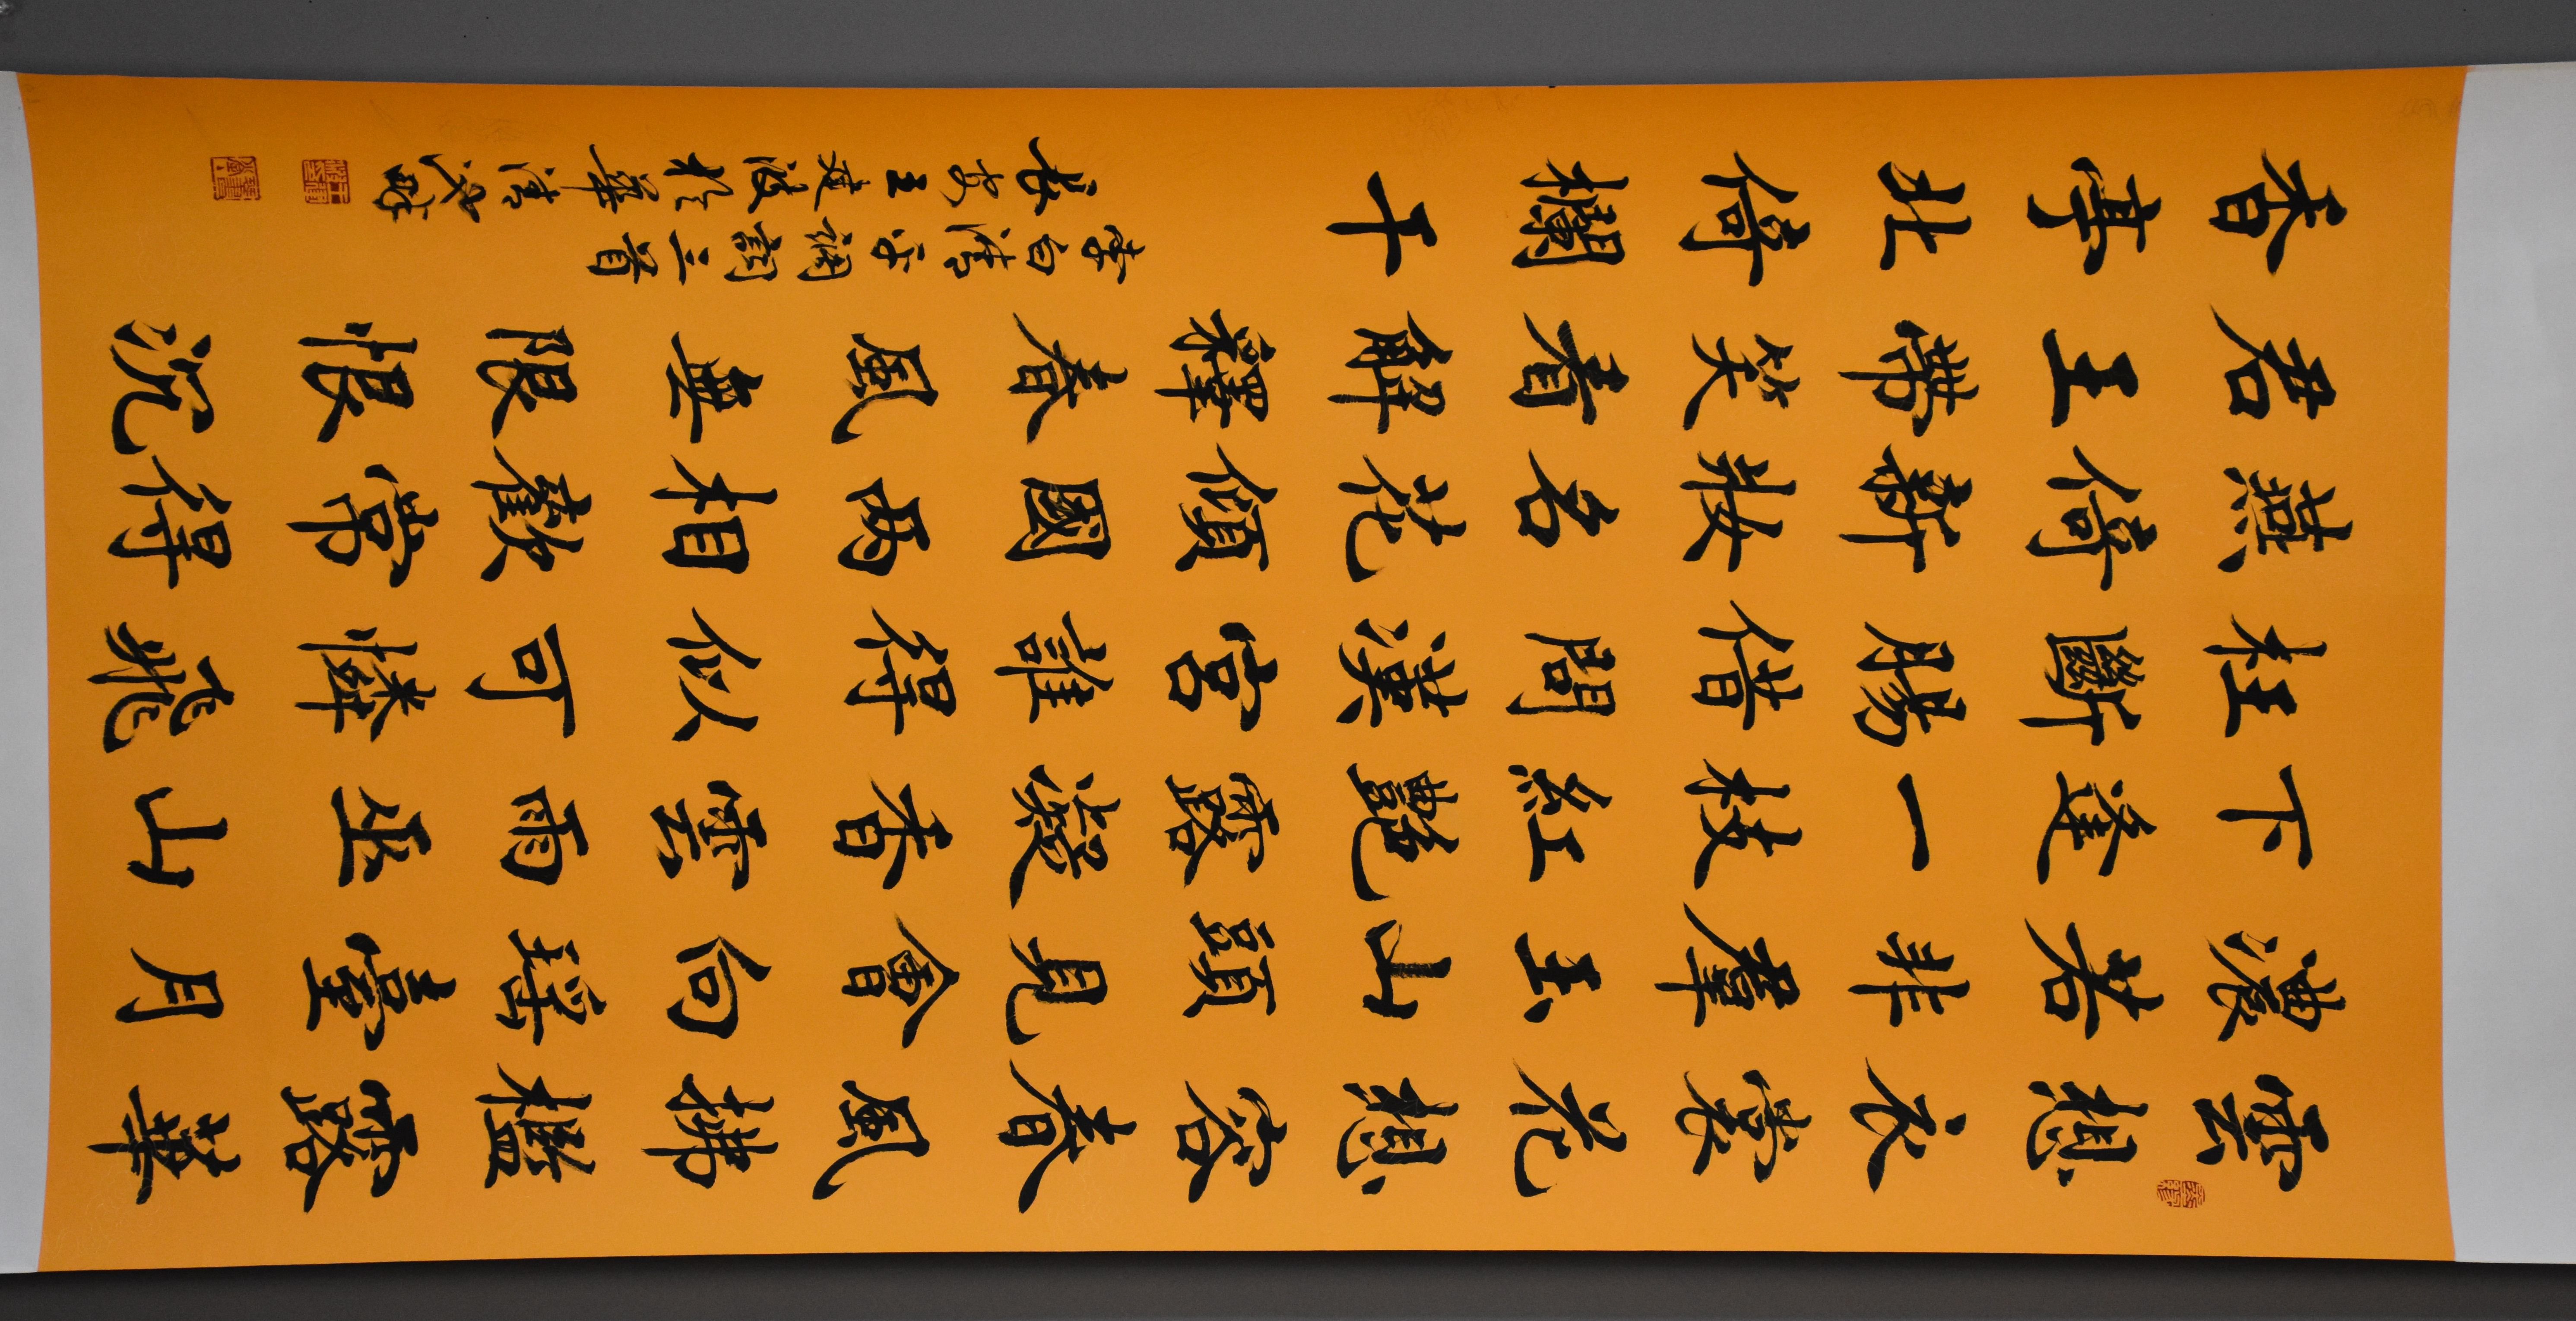 雲想衣裳花想容春風拂檻露華
濃若非羣玉山頭見會向瑤臺月
下逢一枝紅艷露凝香雲雨巫山
枉斷腸借問漢宮誰得似可憐飛
燕倚新妝名花傾國兩相歡常得
君王帶笑看解釋春風無限恨沉
香亭北倚欄干
李白清平調詞三首
長安王建波於華清池畔